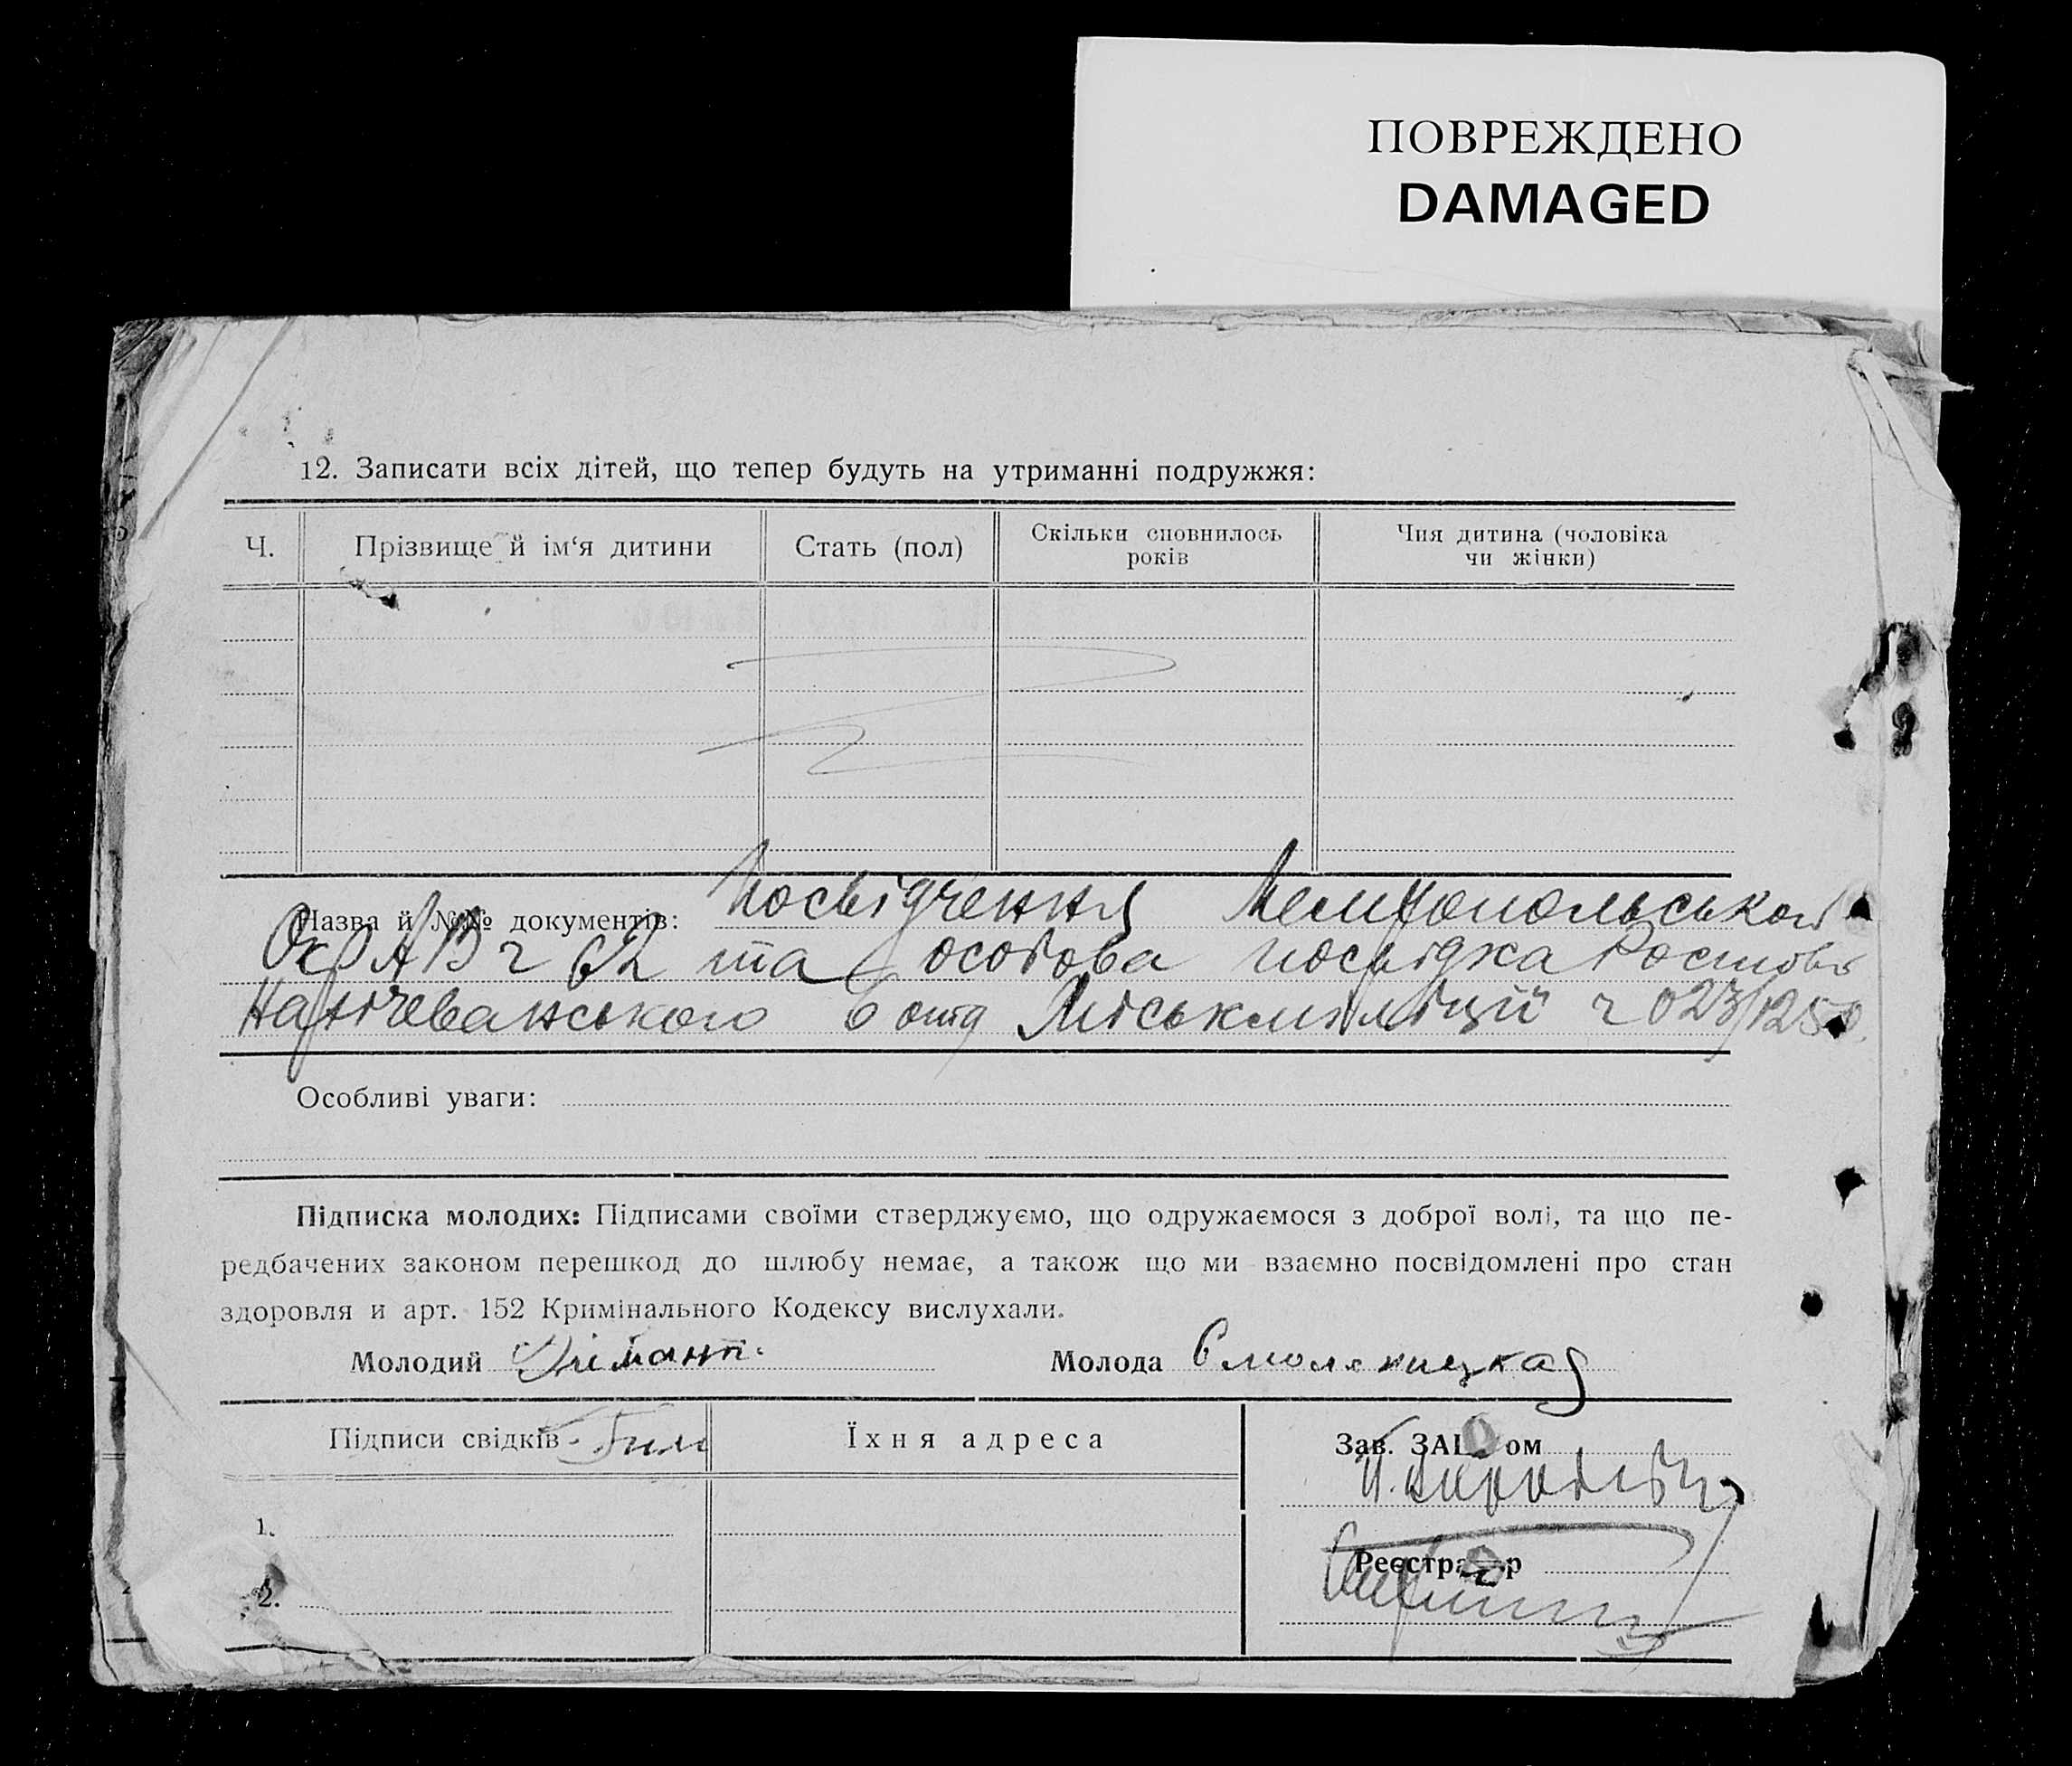 ПОВРЕЖДЕНО
DAMAGED
12. Записати всіх дітей, що тепер будуть на утриманні подружжя:
Ч. Прізвище й ім‘я дитини Стать (пол) Скільки сповнилось років Чия дитина (чоловіка чи жінки)
Назва й №№ документів: Посвідчення Мелітопольського
ч 62 та особова посвідка Ростово
Нахічеванського 6 отд Міськміліції ч 023/1250
Особливі уваги:
Підписка молодих: Підписами своїми стверджуємо, що одружаємося з доброї волі, та що пе-
редбачених законом перешкод до шлюбу немає, а також що ми взаємно посвідомлені про стан
здоровля и арт. 152 Кримінального Кодексу вислухали.
Молодий Діамант. Молода Смоляницкая
Підписи свідків Їхня адреса Зав. ЗАГ ом
1.
Реєстратор
2.